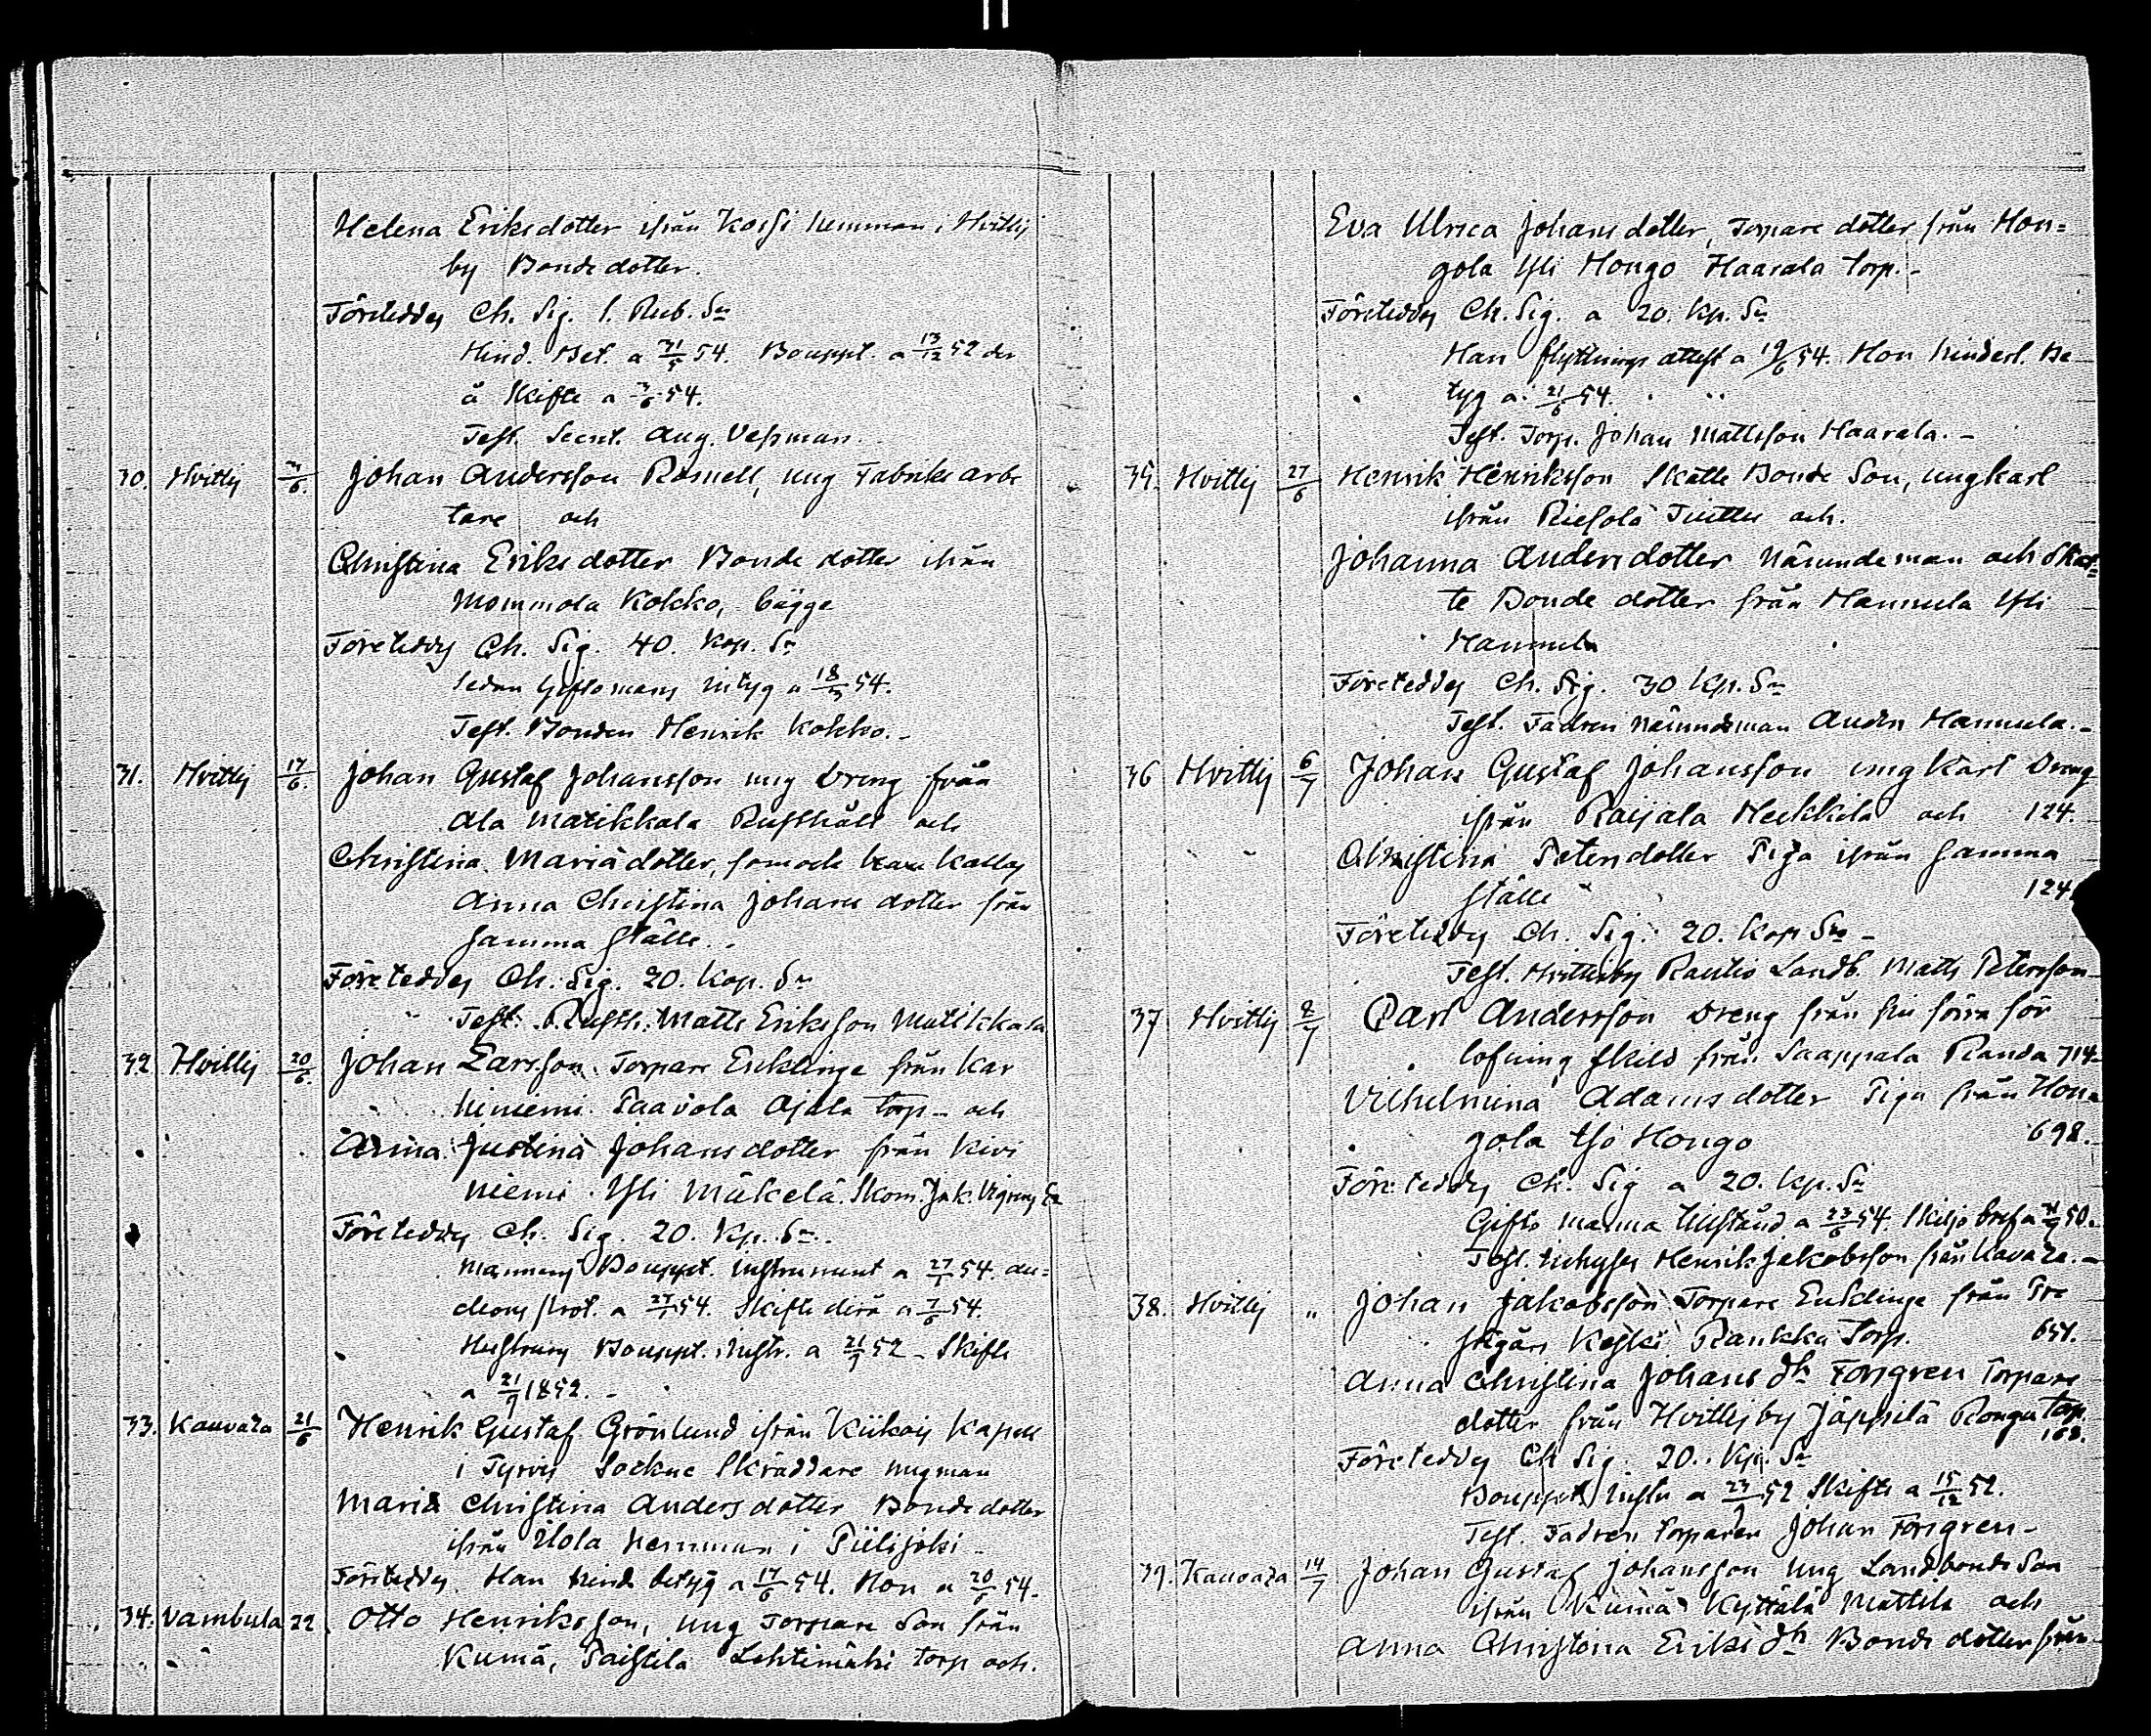 Helena Eriksdotter ifrån Kossi hemman i Hvittis
by Bondedotter.
Företeddes Ch. Sig. 1. Rub. Sr
Hind. Bet. a 31/5 54. Bouppt. a 13/12 52 der
å Skifte a 3/6 54.
Test. Aug. Vessman.
30. Hvittis /6. Johan Andersson Romell, ung Fabriks arbe
tare och
Christina Eriksdotter Bonde dotter ifrån
Mommola Kokko, bägge
Företeddes Ch. Sig. 40. Kop. Sr
sedan Giftomans intyg a 18/ 54.
Test. Bonden Henrik Kokko. -
31. Hvittis 17/6. Johan Gustaf Johansson ung Dreng från
Ala Matikkala Rusthåll och
Christina Mariädotter, som ock kallas
Anna Christina Johans dotter från
samma ställe. -
Företeddes Ch. Sig. 20. Kop. Sr
Test. Rusth. Matts Eriksson Matikkala
32 Hvittis 20/6. Johan Larsson Torpare Enklinge från Kar
hiniemi Paavola Ajala torp - och
Anna Justina Johansdotter från Kivi
niemi Yli Mäkelä. Skom. Jak. Vigrens
Företeddes Ch. Sig. 20. Kp. Sr.
Mannens Bouppt. instrument a 27/ 54. au=
ctions prot. a 27/ 54. Skifte derå a 7/6 54.
Hustruns Bouppt. instr. a 21/9 52 - Skifte
a 21/9 1852. -
33. Kauvaza 21/6 Henrik Gustaf Grönlund ifrån Kiikois Kapell
i Tyrvis Sockne Skräddare ungman
Maria Christina Anders dotter Bondedotter
ifrån Uola hemman i Piilijoki -
Företeddes. Han hind. betyg a 17/6 54. Hon a 20/6 54.
34. Vambula 22 Otto Henriksson, ung Torpare Son från
Kumå, Paistila Lehtimäki torp och.
Eva Ulrica Johansdotter, Torpare dotter från Hon=
gola Yli Hongo Haarala torp. -
Företeddes Ch. Sig. a 20. Kp. Sr
Han flyttnings attest a 19/6 54. Hon hinderl. be
tyg a 21/6 54.
Test. Torp. Johan Mattsson Haarala. -
35. Hvittis 27/6 Henrik Henriksson Skatte Bonde Son, ungkarl
ifrån Riesola Tuittu och.
Johanna Andersdotter Nämndeman och Skat=
te Bonde dotter från Hannula Yli
Hannula
Företeddes Ch. Sig. 30 Kp. Sr
Test. Fadren Nämndsman Anders Hannula. -
36 Hvittis 6/7 Johan Gustaf Johansson ungkarl Dreng
ifrån Raijala Heikkilä och 124.
Christina Petersdotter Piga ifrån samma
ställe 124.
Företeddes Ch. Sig. 20. Kop Sr -
Test. Hvittisby Rautio Landb. Matts Petersson
37 Hvittis /7 Carl Andersson Dreng från sin förra för
lofning skild från Saappala Randa 714
Vilhelmina Adamsdotter Piga från Hon=
gola Iso Hongo 698.
Företeddes Ch. Sig a 20. Kp. Sr
Gifto manna tillstånd a 23/6 54. Skiljo bref a 50.
Test. inhyses Henrik Jakobsson från Kavaza. -
38. Hvittis " Johan Jakobsson Torpare Enklinge från Pre
stgårs Keski Raukka Torp. 651.
Anna Christina Johans dr Forsgren Torpare
dotter från Hvittisby Jäppilä Rongu Torp.
163.
Företeddes Ch Sig. 20. Kp. Sr
Bouppts instr a 23/9 52 Skifte a 15/12 52.
Test. Fadren torparen Johan Forsgren -
39. Kauvaza 14/7 Johan Gustaf Johansson ung Landbonde Son
ifrån Kumå Kyttälä Mattila och
Anna Christina Eriks dr Bonde dotter från